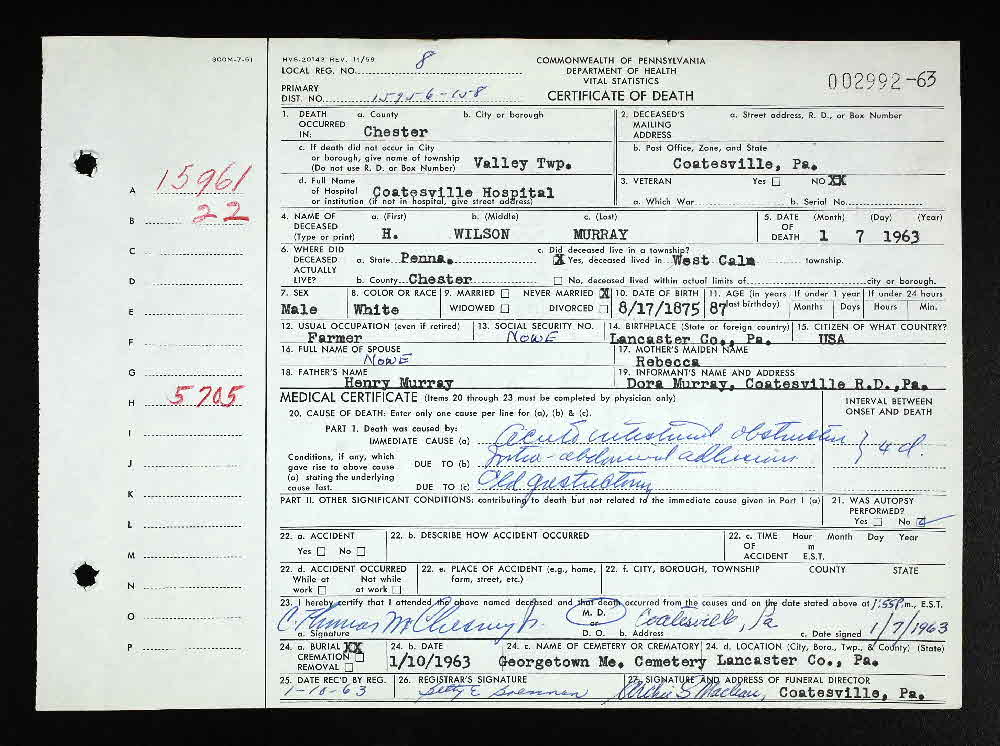 300M-7-61
HVS-20142 REV. 11/59
LOCAL REG. NO. 8
PRIMARY
DIST. NO. 15956-158
COMMONWEALTH OF PENNSYLVANIA
DEPARTMENT OF HEALTH
VITAL STATISTICS
CERTIFICATE OF DEATH
002992-63
1. DEATH OCCURRED IN: a. County b. City or borough
Chester
c. If death did not occur in City or borough, give name of township (Do not use R. D. or Box Number) Valley Twp.
d. Full Name of Hospital or institution (if not in hospital, give street address) Coatesville Hospital
2. DECEASED'S MAILING ADDRESS a. Street address, R. D., or Box Number
b. Post Office, Zone, and State
Coatesville, Pa.
3. VETERAN Yes NO XX
a. Which War b. Serial No.
4. NAME OF DECEASED (Type or print) a. (First) b. (Middle) c. (Last)
H. WILSON MURRAY
5. DATE OF DEATH (Month) (Day) (Year)
1 7 1963
6. WHERE DID DECEASED ACTUALLY LIVE? a. State Penna.
b. County Chester
c. Did deceased live in a township?
X Yes, deceased lived in West Caln township.
No, deceased lived within actual limits of city or borough.
7. SEX
Male
8. COLOR OR RACE
White
9. MARRIED NEVER MARRIED X
WIDOWED DIVORCED
10. DATE OF BIRTH
8/17/1875
11. AGE (in years last birthday) If under 1 year If under 24 hours
87 Months Days Hours Min.
12. USUAL OCCUPATION (even if retired)
Farmer
13. SOCIAL SECURITY NO.
NONE
14. BIRTHPLACE (State or foreign country)
Lancaster Co., Pa.
15. CITIZEN OF WHAT COUNTRY?
USA
16. FULL NAME OF SPOUSE
NONE
17. MOTHER'S MAIDEN NAME
Rebecca
18. FATHER'S NAME
Henry Murray
19. INFORMANT'S NAME AND ADDRESS
Dora Murray, Coatesville R.D., Pa.
MEDICAL CERTIFICATE (Items 20 through 23 must be completed by physician only)
INTERVAL BETWEEN ONSET AND DEATH
20. CAUSE OF DEATH: Enter only one cause per line for (a), (b) & (c).
PART I. Death was caused by:
IMMEDIATE CAUSE (a) Acute intestinal obstruction } 4 d.
Conditions, if any, which gave rise to above cause (a) stating the underlying cause last.
DUE TO (b) Intra-abdominal adhesions
DUE TO (c) Old gastrectomy
PART II. OTHER SIGNIFICANT CONDITIONS: contributing to death but not related to the immediate cause given in Part I (a)
21. WAS AUTOPSY PERFORMED?
Yes No
22. a. ACCIDENT
Yes No
22. b. DESCRIBE HOW ACCIDENT OCCURRED
22. c. TIME OF ACCIDENT Hour m E.S.T. Month Day Year
22. d. ACCIDENT OCCURRED
While at work Not while at work
22. e. PLACE OF ACCIDENT (e.g., home, farm, street, etc.)
22. f. CITY, BOROUGH, TOWNSHIP COUNTY STATE
23. I hereby certify that I attended the above named deceased and that death occurred from the causes and on the date stated above at 1:55P.m., E.S.T.
C. Thomas McChesney Jr. M. D. or D. O. Coatesville, Pa 1/7/1963
a. Signature b. Address c. Date signed
24. a. BURIAL XX
CREMATION
REMOVAL
24. b. DATE
1/10/1963
24. c. NAME OF CEMETERY OR CREMATORY
Georgetown Me. Cemetery
24. d. LOCATION (City, Boro., Twp., & County) (State)
Lancaster Co., Pa.
25. DATE REC'D BY REG.
1-10-63
26. REGISTRAR'S SIGNATURE
Betty E
27. SIGNATURE AND ADDRESS OF FUNERAL DIRECTOR
Archie S Maclean, Coatesville, Pa.
A 15961
B 22
C
D
E
F
G
H 5705
I
J
K
L
M
N
O
P